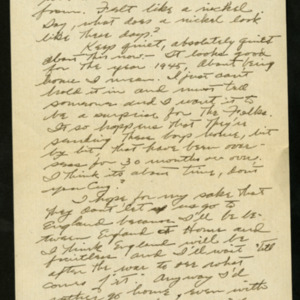 from. Felt like a nickel.
Say, what does a nickel look
like these days?
Keep quiet, absolutely quiet
about this now - It looks good
for the year 1945, about being
home I mean. I just can't
hold it in and must tell
someone and I want it to
be a surprise for the Folks.
It so happens that they're
sending these boys home, bit
by bit, that have been over-
seas for 30 months or over.
I think its about time, don't
you Eng?
I hope for my sake that
they don't let us go to
England because I'll be be-
tween England & Home and
I think England will be
fruitless and I'll wait 'till
after the war to see what
comes of it. Anyway I'd
rather go home, even with